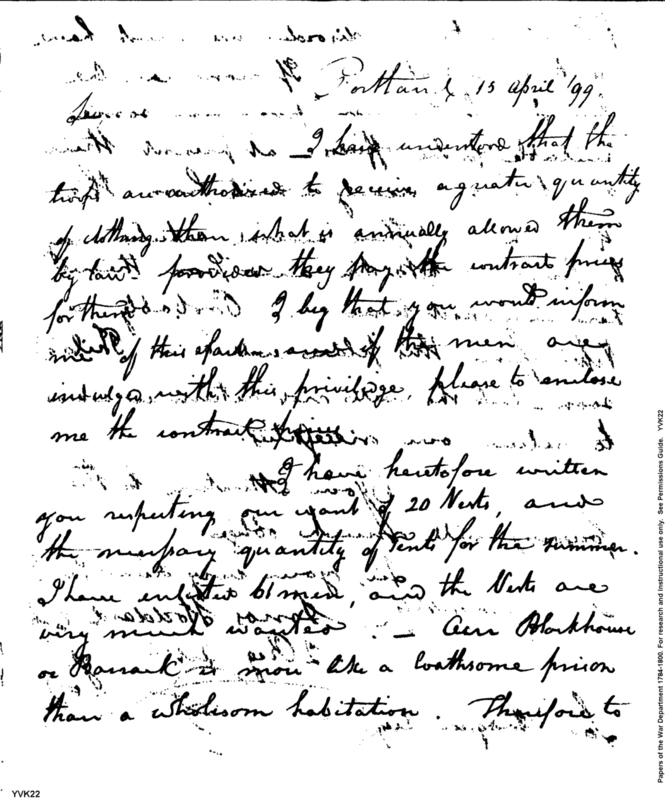 Portland 15 April '99.
I have understood that the
troops are authorized to receive a greater quantity
of clothing than what is annually allowed them
by law provided they pay the contract prices
for them I beg that you would inform
me of this and if the men are
indulged with this privilege, please to enclose
me the contract prices
I have heretofore written
you respecting our want of 20 Vests, and
the necessary quantity of Tents for the summer.
I have enlisted 61 men, and the Vests are
very much wanted. — Our Blockhouse
or Barrack is more like a loathsome prison
than a wholesom habitation. Therefore to
Papers of the War Department 1784-1800. For research and Instructional use only. See Permissions Guide. YVK22
YVK22